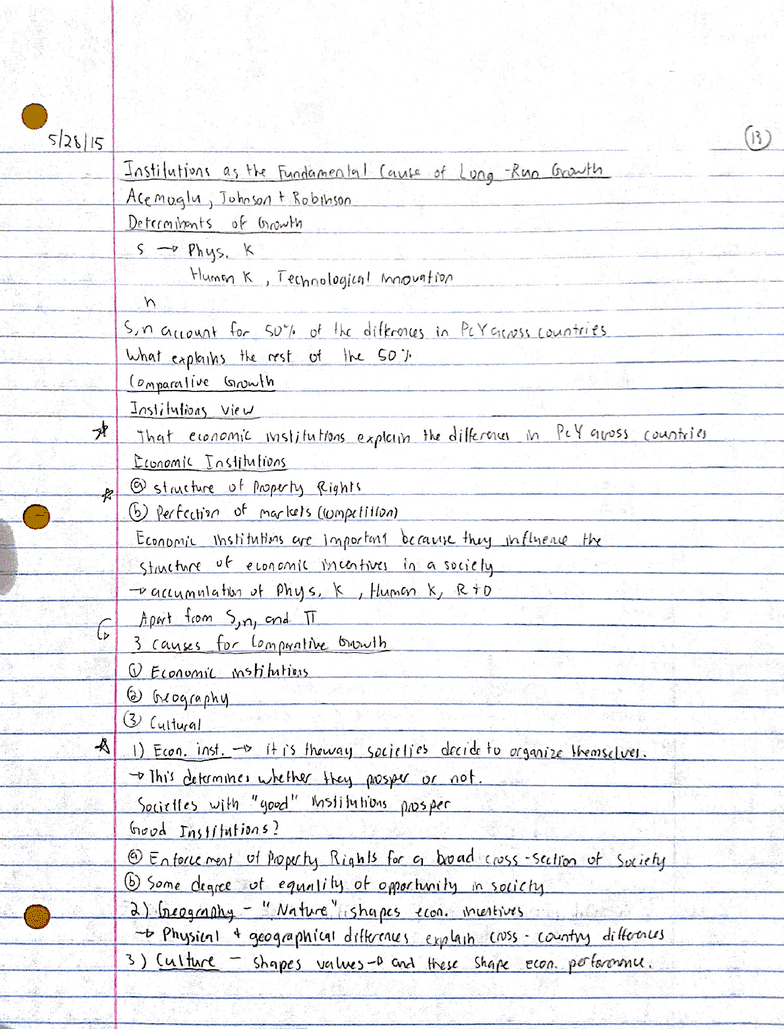 5/28/15
13
Institutions as the Fundamental Cause of Long-Run Growth
Acemoglu, Johnson + Robinson
Determinants of Growth
S → Phys. K
Human K, Technological Innovation
n
S,n account for 50% of the differences in PcY across countries
What explains the rest of the 50%
Comparative Growth
Institutions view
☆ That economic institutions explain the differences in PcY across countries
Economic Institutions
☆ ⓐ structure of Property Rights
ⓑ Perfection of markets (competition)
Economic institutions are important because they influence the
structure of economic incentives in a society
→ accumulation of Phys. K, Human K, R+D
Apart from S,n, and Π
3 causes for Comparative Growth
① Economic institutions
② Geography
③ Cultural
☆ 1) Econ. inst. → it is the way societies decide to organize themselves.
→ This determines whether they prosper or not.
Societies with "good" institutions prosper
Good Institutions?
ⓐ Enforcement of Property Rights for a broad cross-section of Society
ⓑ Some degree of equality of opportunity in society
2) Geography - "Nature" shapes econ. incentives
→ Physical + geographical differences explain cross-country differences
3) Culture - shapes values → and these shape econ. performance.